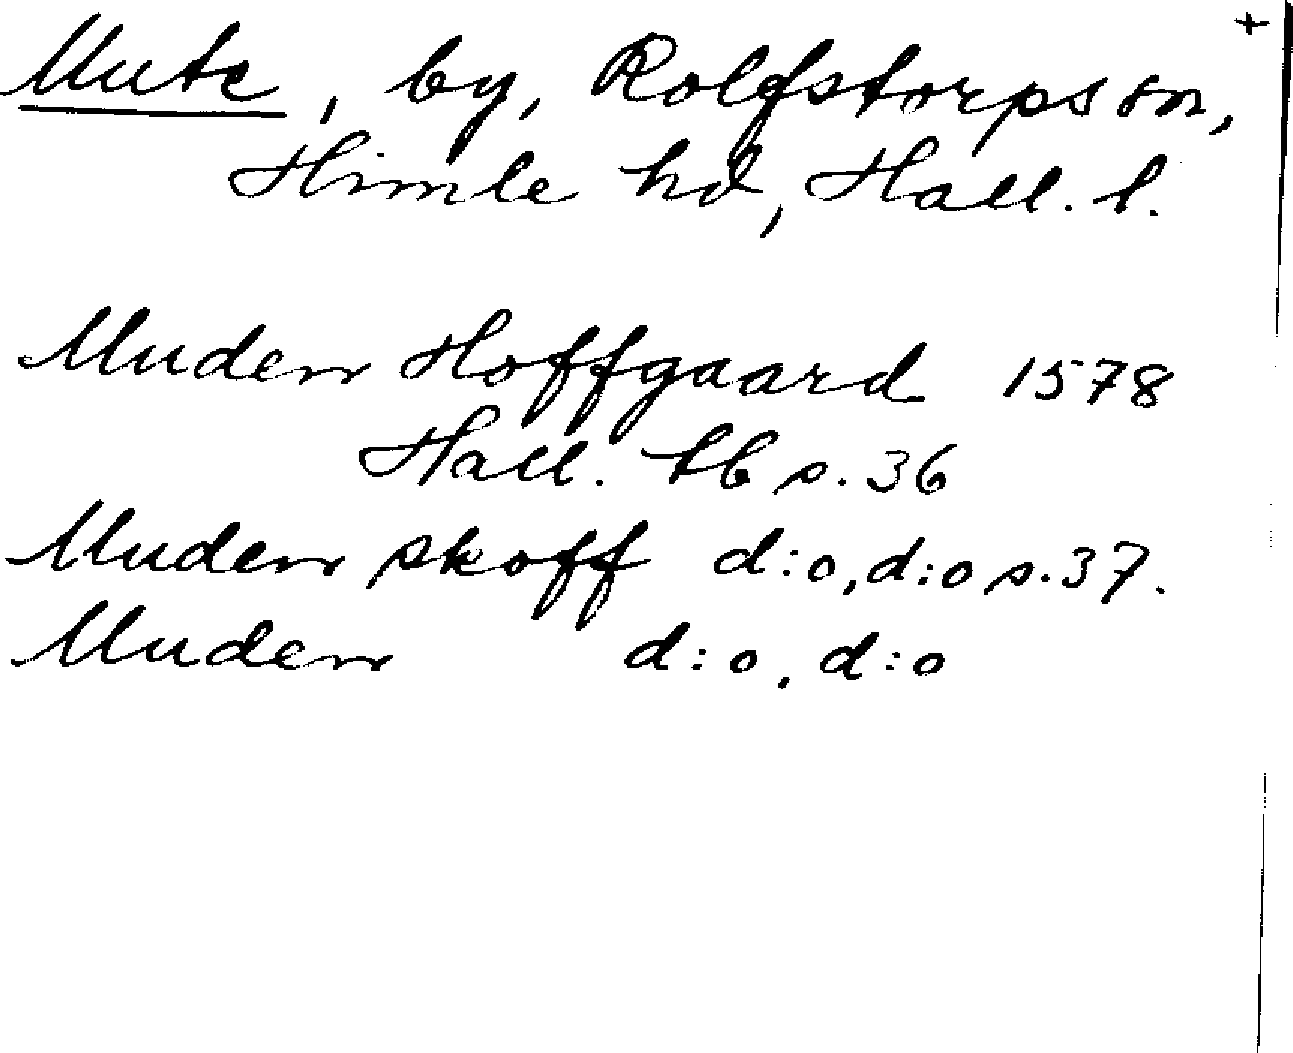 Mute, by, Rolfstorps sn, +
Himle hd, Hall. l.
Muden Hoffgaard 1578
Hall. tb s. 36
Muden skoff d:o, d:o s. 37.
Muden d:o, d:o